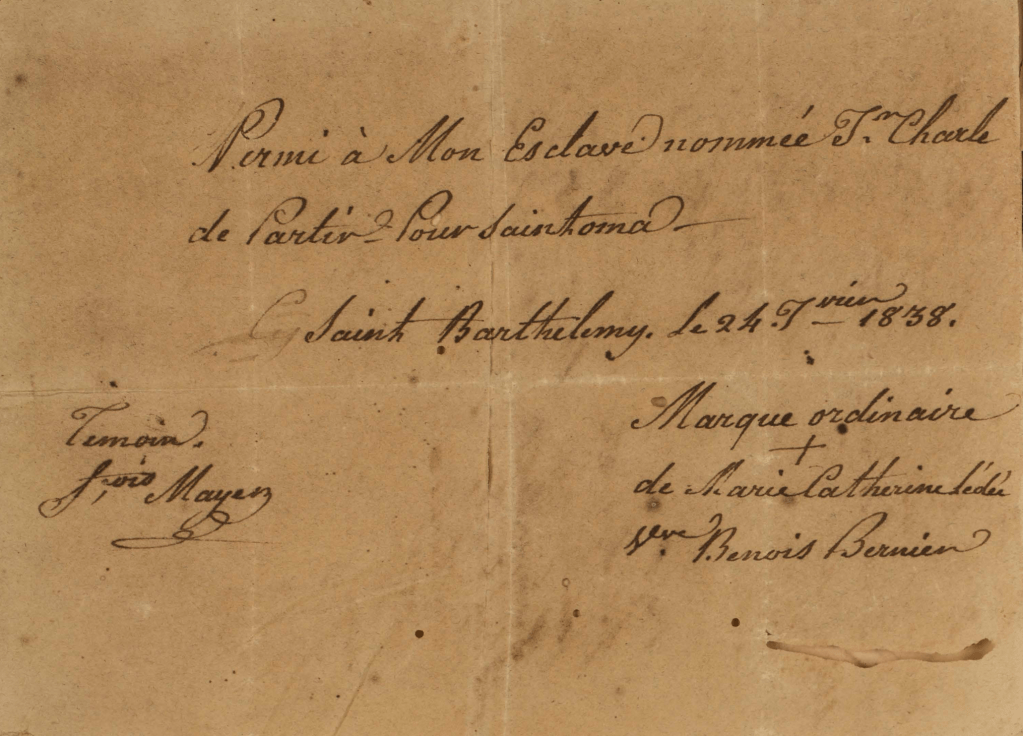 Permi à Mon Esclave nommée Jn Charle
de Partir Pour Saintoma
Saint Barthelemy. le 24 Jvier 1838.
Temoin.
f,ois Mayer
Marque ordinaire
+
de Marie Catherine Lédée
Vve Benois Bernier